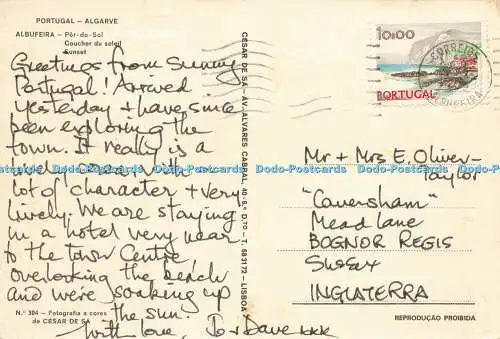 PORTUGAL - ALGARVE
ALBUFEIRA - Pôr-do-Sol
Coucher du soleil
Sunset
Greetings from Sunny
Portugal! Arrived
yesterday + have since
been exploring the
town. It really is a
lovely place with a
lot of character + very
lively. We are staying
in a hotel very near
to the town centre,
overlooking the beach
and we're soaking up
the sun.
With love, Jo + Dave xxx
N.º 304 - Fotografia a cores
de CÉSAR DE SÁ
CÉSAR DE SÁ - AV. ALVARES CABRAL, 40-6.º D.TO - T. 683172 - LISBOA
10$00
PORTUGAL
CORREIOS
ALBUFEIRA
Mr + Mrs E. Oliver-
Taylor
"Caversham"
Mead Lane
BOGNOR REGIS
Sussex
INGLATERRA
REPRODUÇÃO PROIBIDA
Dodo-Postcards Dodo-Postcards Dodo-Postcards Dodo-Postcards Dodo-Postcards